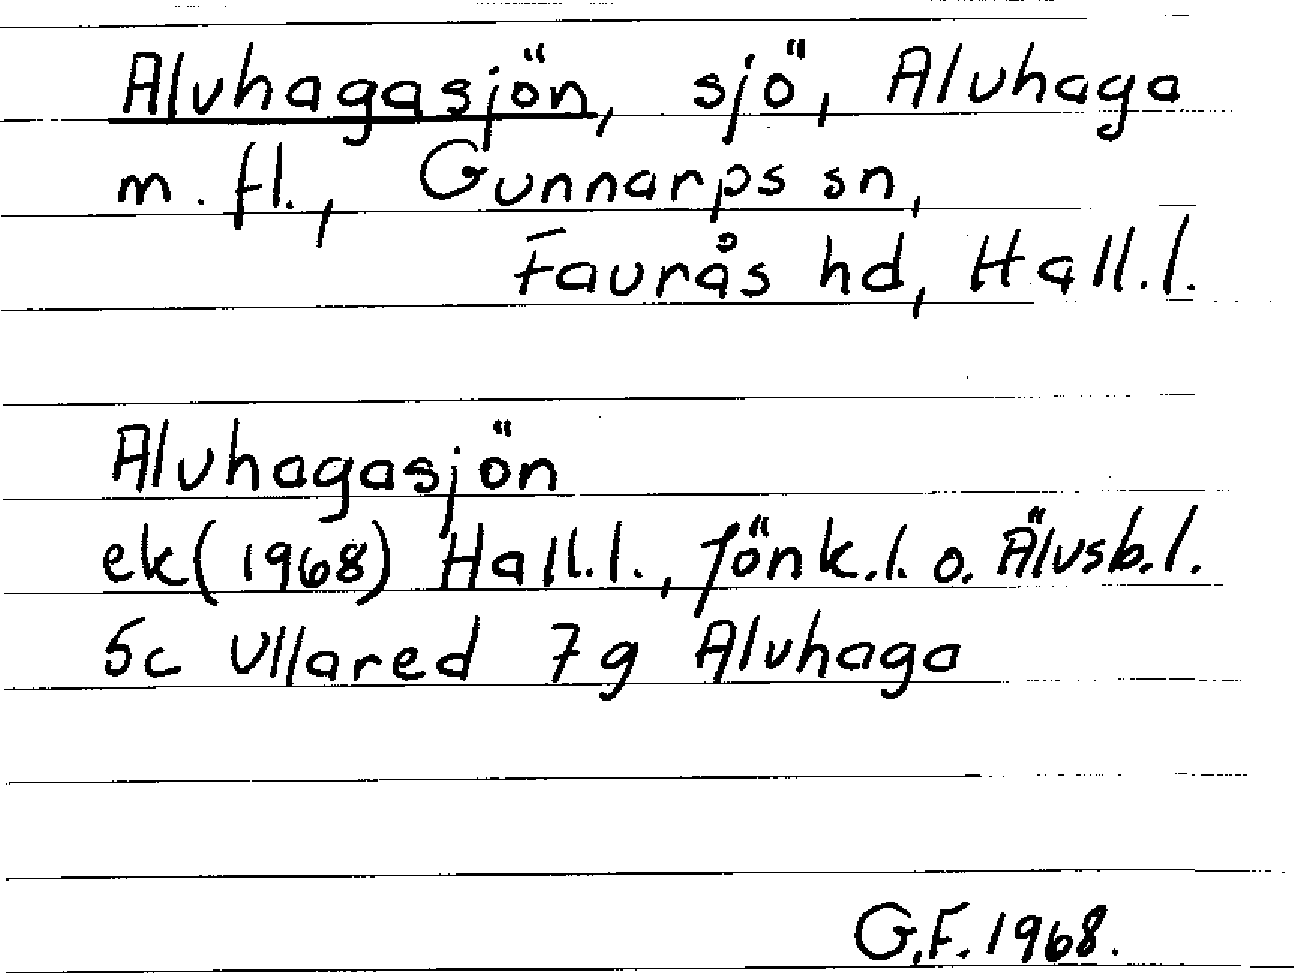 Alvhagasjön, sjö, Alvhaga
m. fl., Gunnarps sn,
Faurås hd, Hall.l.
Alvhagasjön
ek(1968) Hall.l., Jönk.l. o. Älvsb.l.
5c Ullared 7g Alvhaga
G.F. 1968.